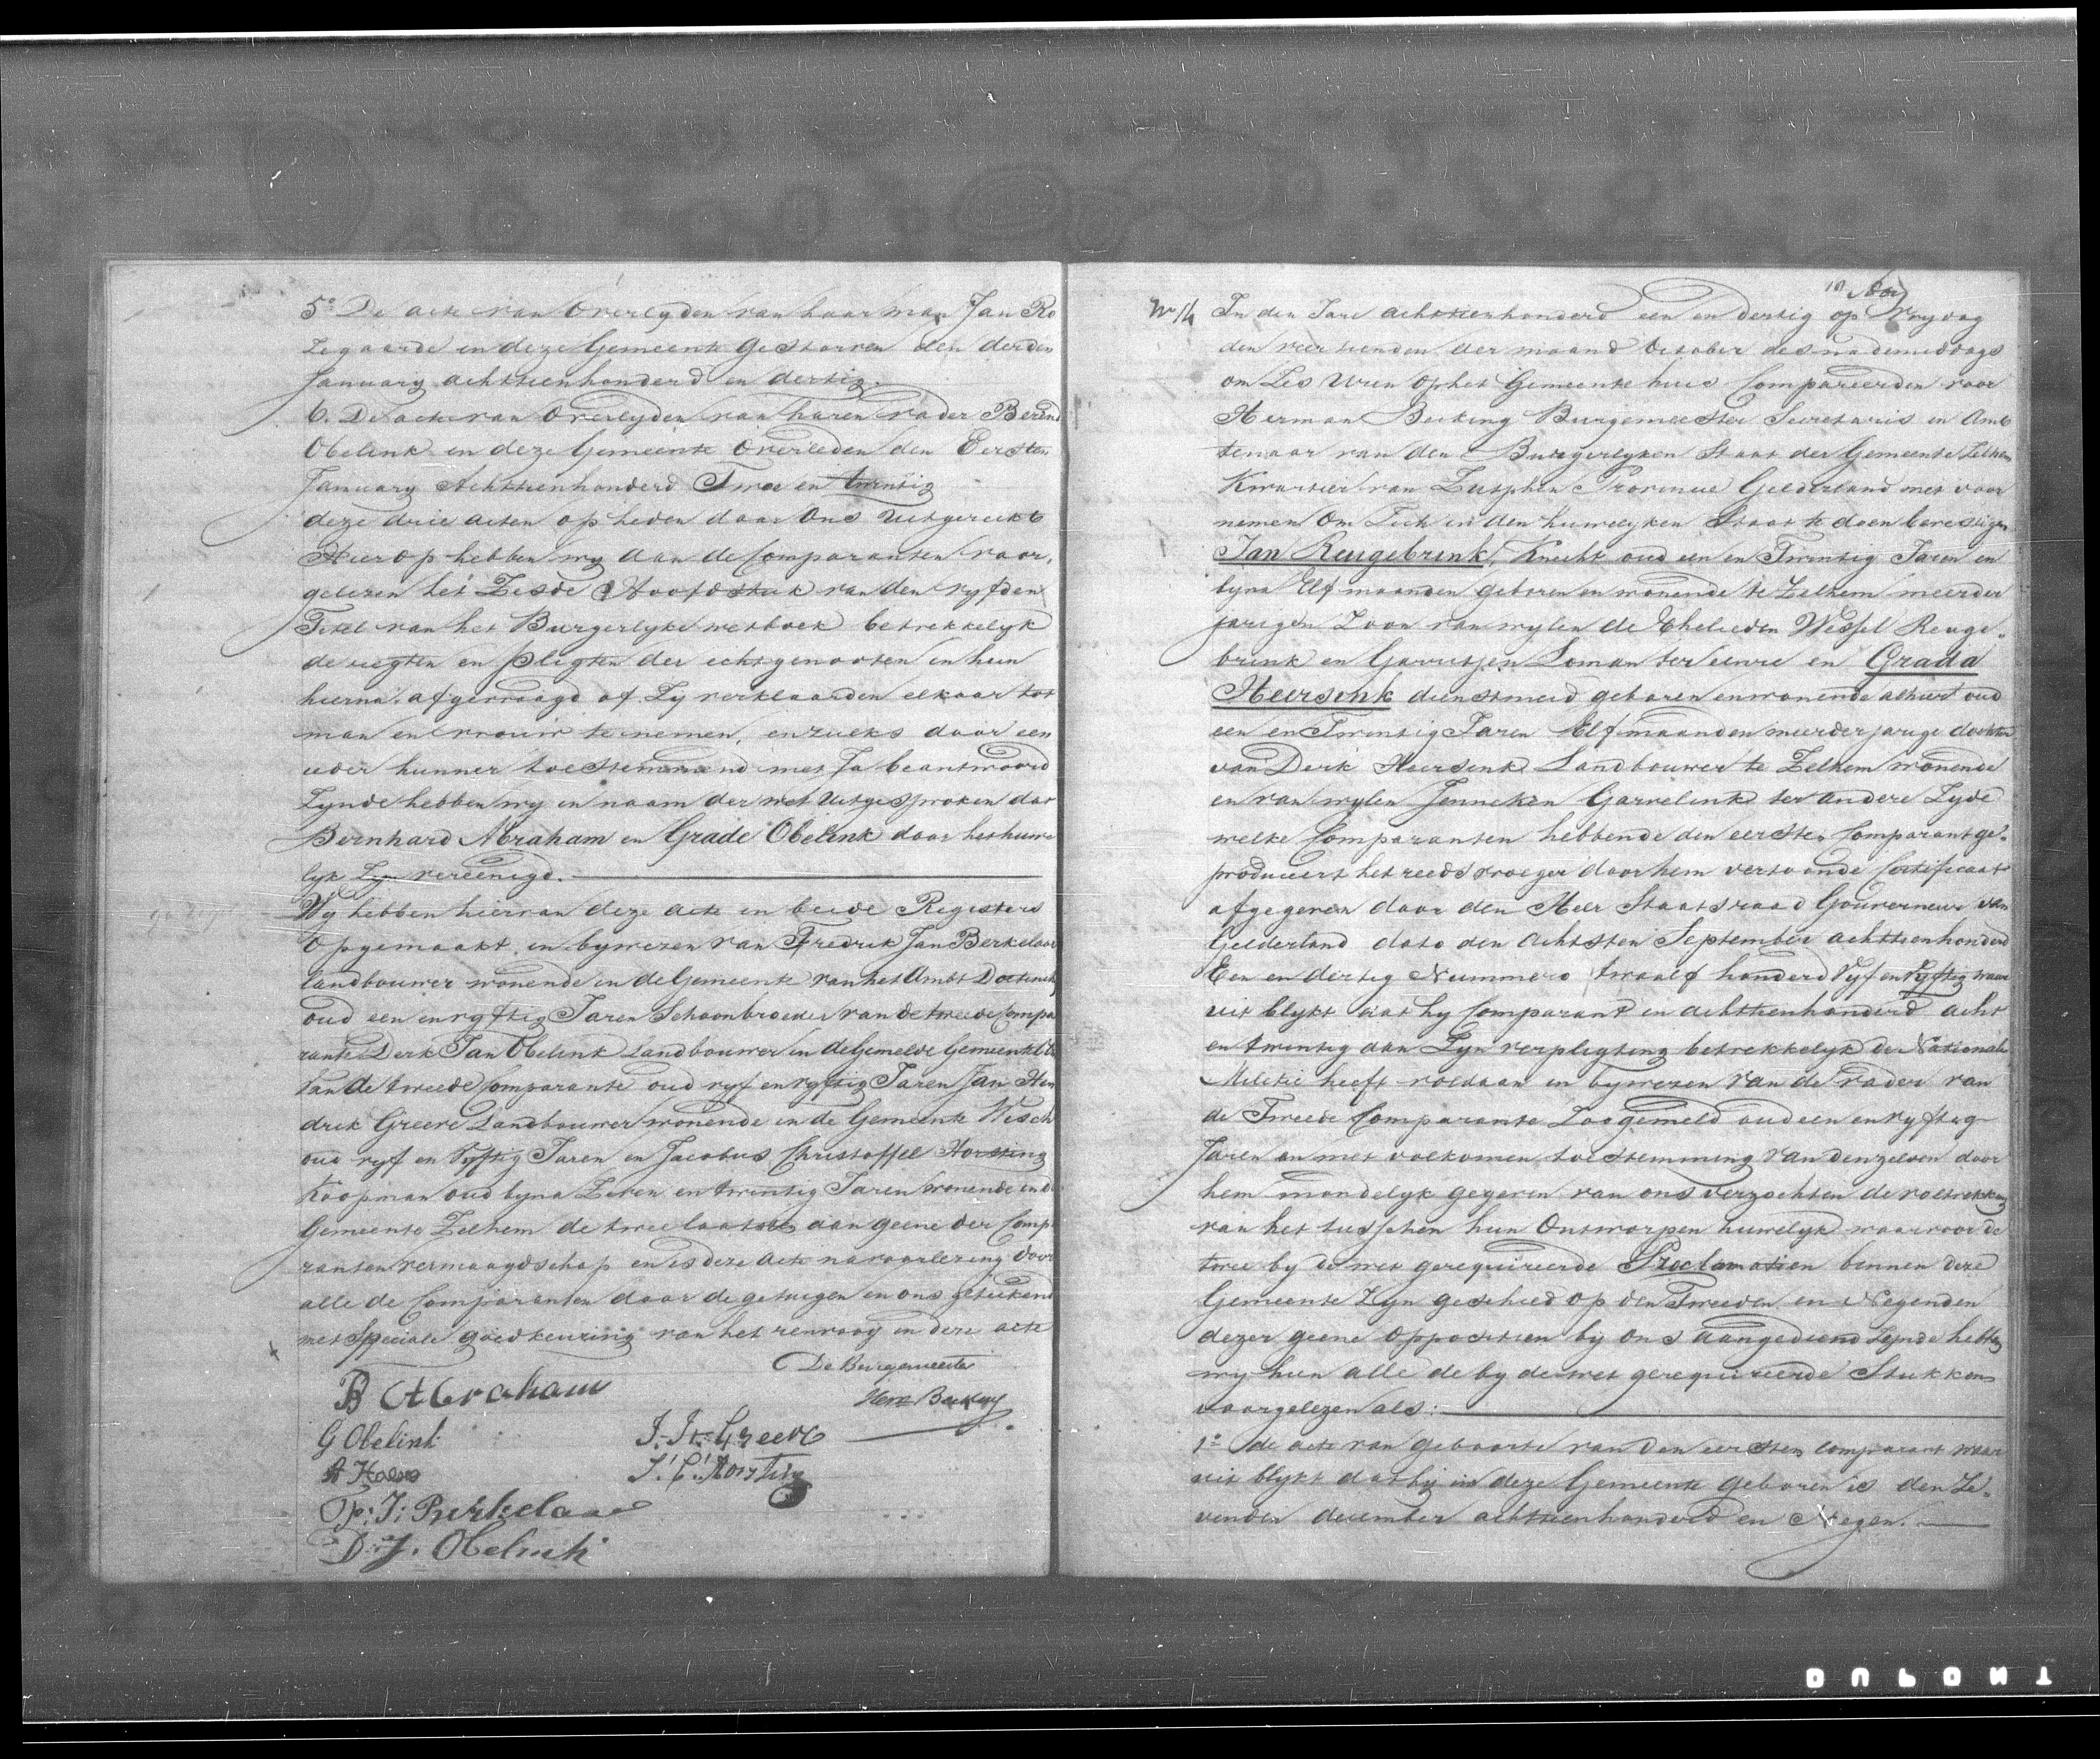 5o De acte van Overlyden van haar man Jan Ro
zegaarde in deze Gemeente gestorven den derden
January achttienhonderd en dertig.
6. De acte van Overlyden van haren vader Berend
Obelink in deze Gemeente Overleden den Eersten
January Achttienhonderd Twee en twintig
deze drie acten op heden door Ons Uitgereikt
Hierop hebben wy aan de Comparanten voor,
gelezen het Zesde Hoofdstuk van den vyfden
Titel van het Burgerlyke wetboek betrekkelyk
de regten en pligten der echtgenooten en hun
hierna afgevraagd of Zy verklaarden elkaar tot
man en vrouw te nemen, en zulks door een
ieder hunner toestemmend met Ja beantwoord
Zynde hebben wy in naam der wet Uitgesproken dat
Bernhard Abraham en Grade Obelink door het huwe
lyk Zyn vereenigd.
Wy hebben hiervan deze acte in beide Registers
Opgemaakt in bywezen van Fredrik Jan Berkelaar
landbouwer wonende in de Gemeente van het Ambt Doetinch
oud een en vyftig Jaren Schoonbroeder van de tweede Compa
rante Derk Jan Obelink Landbouwer in de Gemelde Gemeente
van de tweede Comparante oud vyf en vyftig Jaren Jan Hen
drik Greeve Landbouwer wonende in de Gemeente Wisch
oud vyf en Vyftig Jaren en Jacobus Christoffel Horsting
Koopman oud byna Zeven en twintig Jaren wonende in de
Gemeente Zelhem de twee laatste aan geene der Comp
ranten vermaagdschap en is deze acte na voorlezing door
alle de Comparanten door de getuigen en ons geteekend
met Speciale goedkeuring van het renvooy in deze acte
De Burgemeester
B Abraham
Herm Becking
G Obelink
J. H. Greeve
A
J. C. Horsting
J: Berkelaar
D. J. Obelink
No 14 In den Jare achttienhonderd een en dertig op Vrydag
den veertienden der maand October des nademiddags
om Zes Uren op het Gemeente huis Compareerden voor
Herman Becking Burgemeester Secretaris en Amb
tenaar van den Burgerlyken Staat der Gemeente Zelhem
Kwartier van Zutphen Provincie Gelderland met voor
nemen Om Zich in den huwelyken Staat te doen bevestigen
Jan Reugebrink, Knecht oud een en Twintig Jaren en
byna Elf maanden geboren en wonende te Zelhem meerder
jarigen Zoon van wylen de Ehelieden Wessel Reuge-
brink en Garritjen Loman ter eenre en Grada
Heersink dienstmeid geboren en wonende alhier oud
een en Twintig Jaren Elf maanden meerderjarige dochter
van Derk Heersink Landbouwer te Zelhem wonende
en van wylen Jenneken Garvelink ter andere Zyde
welke Comparanten hebbende den eersten Comparant ge-
produceert het reeds vroeger door hem vertoonde Certificaat
afgegeven door den Heer Staatsraad Gouverneur van
Gelderland dato den achtsten September achttienhonderd
Een en dertig Nummero twaalf honderd Vyf en Vyftig waar
uit blykt dat hy Comparant in achttienhonderd acht
en twintig aan Zyn verpligting betrekkelyk de Nationale
Militie heeft voldaan in bywezen van de vader van
de Tweede Comparante Zoogemeld oud een en vyftig
Jaren en met volkomen toestemming van denzelven door
hem mondelyk gegeven van ons verzochten de voltrekking
van het tusschen hun Ontworpen huwelyk waarvoor de
twee by de wet gerequireerde Proclamatien binnen deze
Gemeente Zyn geschied op den Tweeden en Negenden
dezer geene Oppositien by Ons aangediend Zynde hebben
wy hun alle de by de wet gerequireerde Stukken
voorgelezen als:
1o de acte van geboorte van den eersten comparant waar
uit blykt dat hy in deze Gemeente geboren is den Ze-
venden december achttienhonderd en Negen.
DUPONT